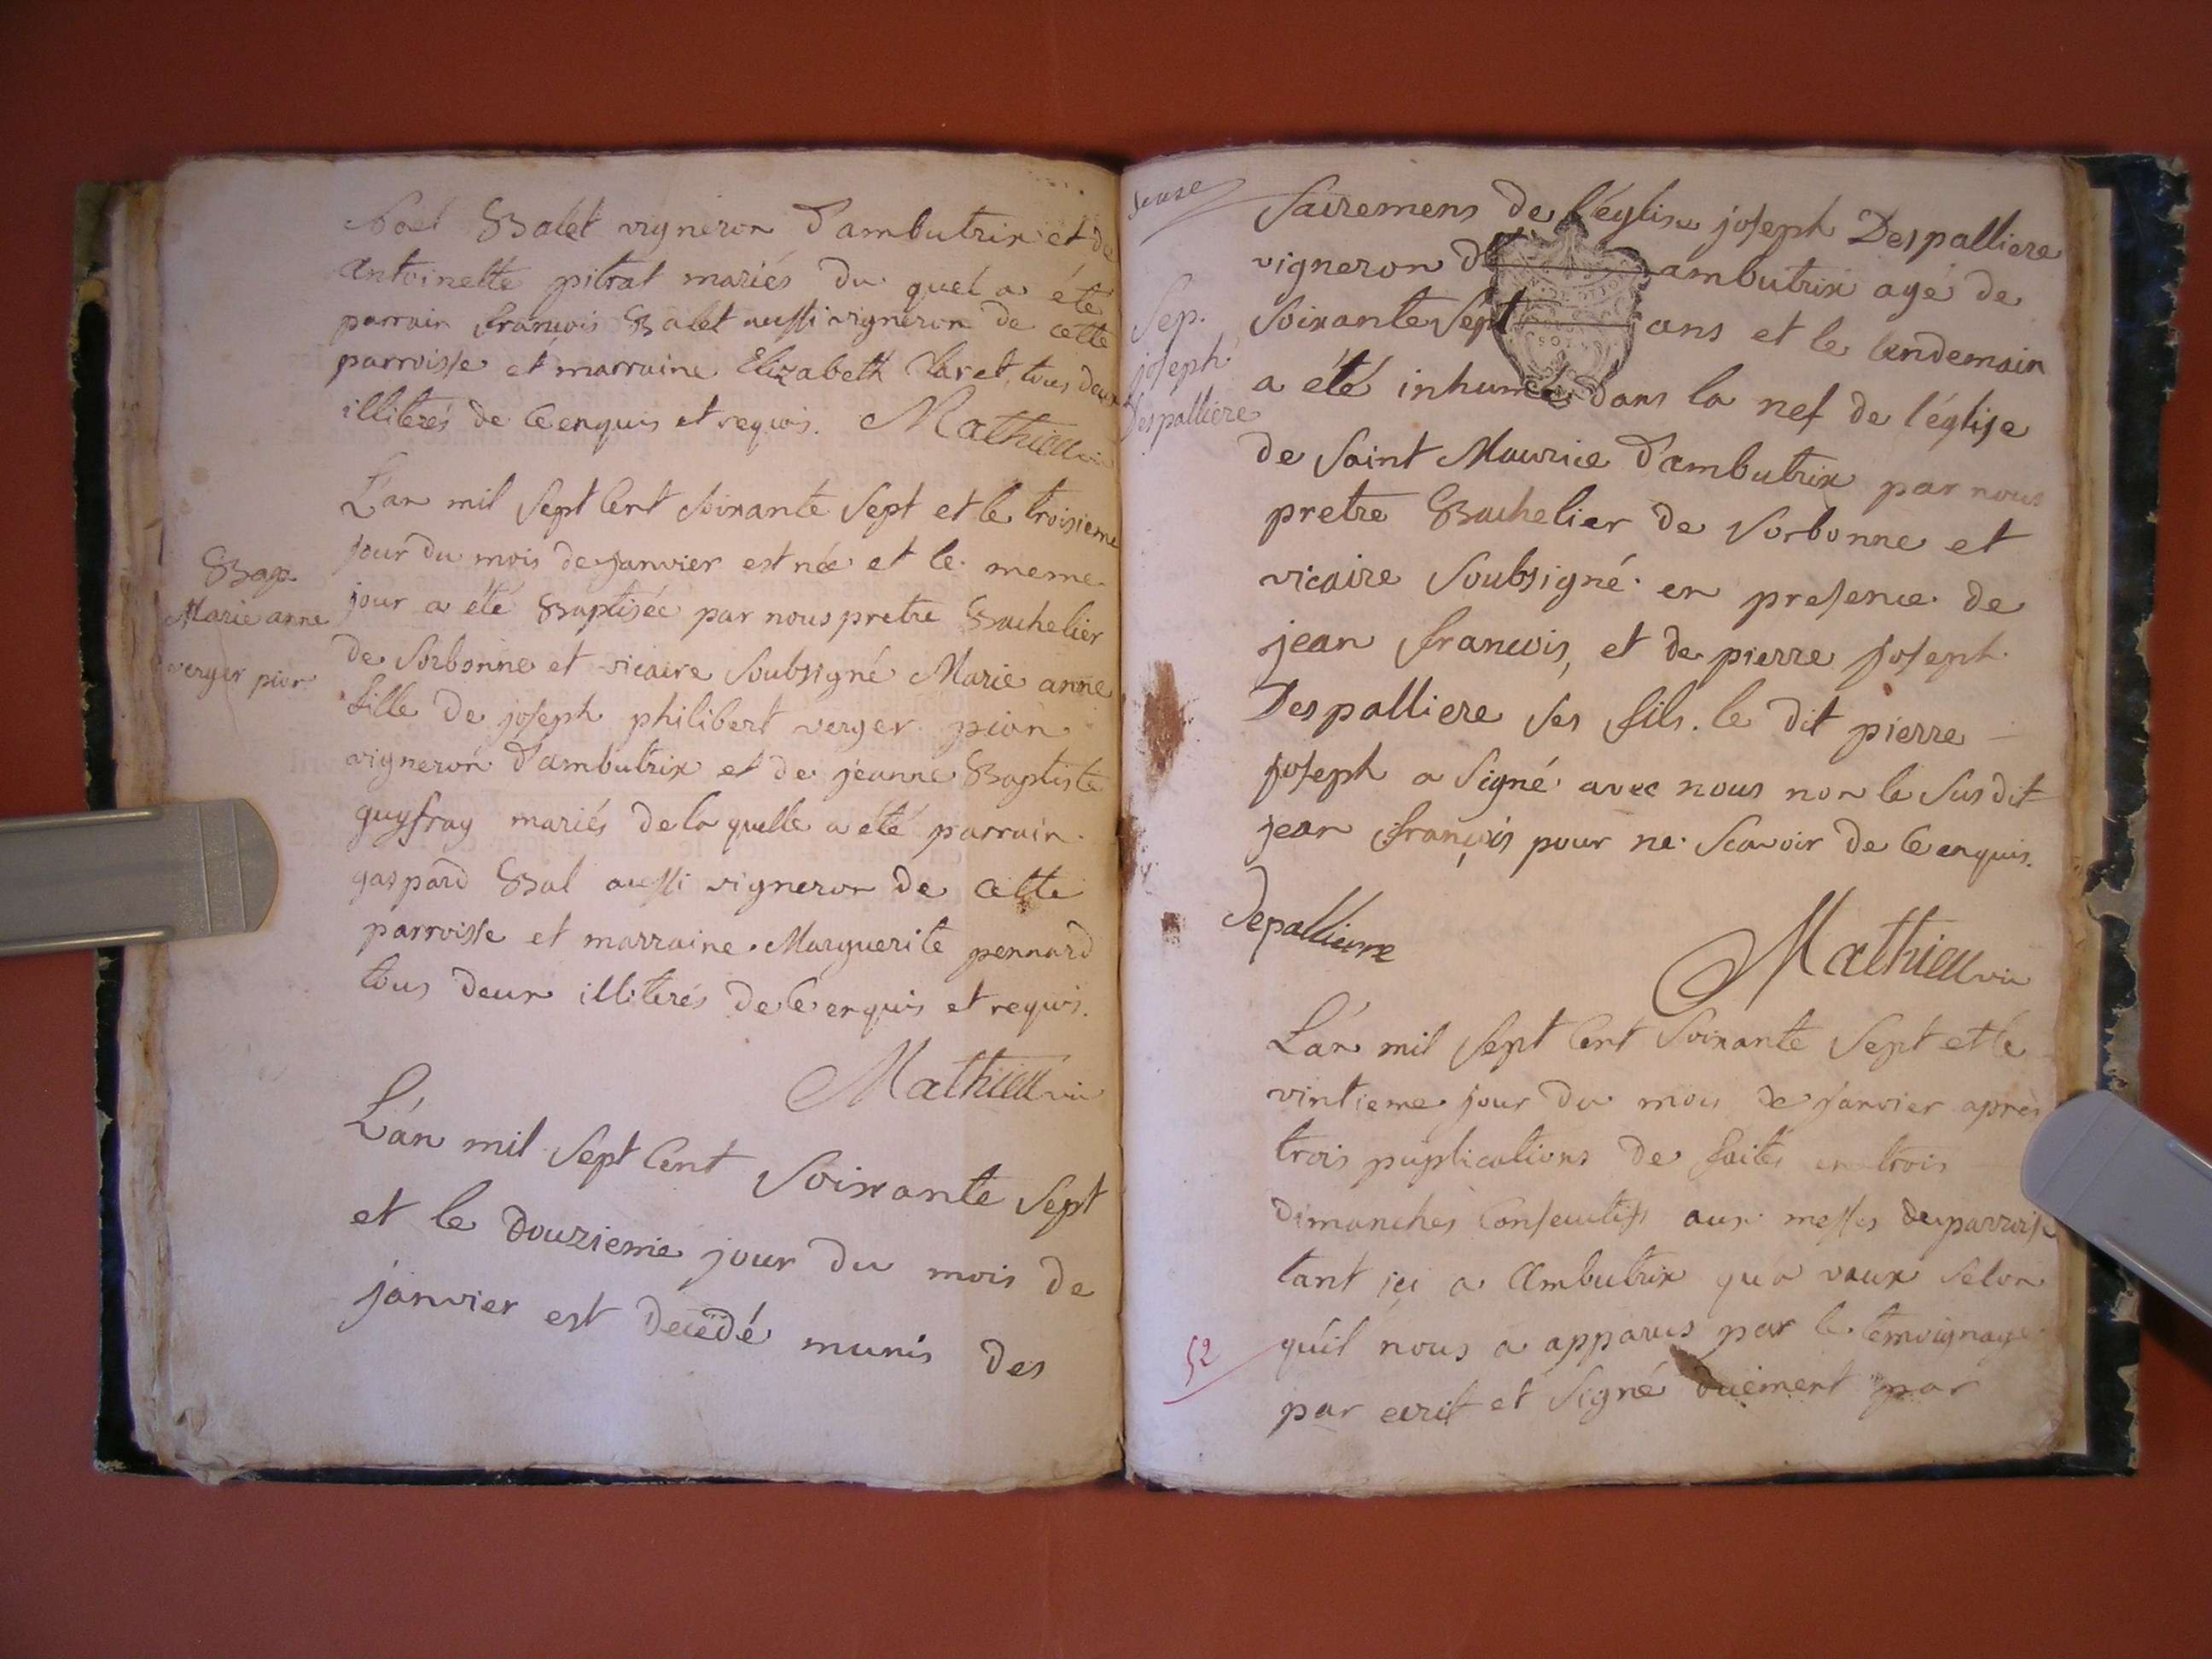 Noel Balet vigneron d'ambutrix et de
antoinette pitrat mariés du quel a été
parrain francois Balet aussi vigneron de cette
parroisse et marraine Elizabeth Claret, tous deux
illiterés de ce enquis et requis. Mathieu vic
L'an mil sept cent soixante sept et le troisieme
jour du mois de janvier est née et le meme
Bap.
Marie anne
verger pion
jour a été Baptisée par nous pretre Bachelier
de sorbonne et vicaire soubsigné Marie anne
fille de joseph philibert verger pion
vigneron d'ambutrix et de jeanne Baptiste
guyfray mariés de la quelle a été parrain
gaspard Bal aussi vigneron de cette
parroisse et marraine Marguerite pennard
tous deux illiterés de ce enquis et requis.
Mathieu vic
L'an mil sept cent soixante sept
et le douzieme jour du mois de
janvier est decedé munis des
sacremens de l'église joseph Despalliere
vigneron d' ambutrix agé de
Sep.
joseph
Despalliere
soixante sept ans et le lendemain
a été inhumé dans la nef de l'église
de saint Maurice d'ambutrix par nous
pretre Bachelier de sorbonne et
vicaire soubsigné en presence de
jean francois, et de pierre joseph
Despalliere ses fils. le dit pierre
joseph a signé avec nous non le susdit
jean françois pour ne scavoir de ce enquis.
Depallierre
Mathieu vic
L'an mil sept cent soixante sept et le
vintieme jour du mois de janvier après
trois puplications de faites en trois
dimanches consecutifs aux messes de parroisse
tant ici a ambutrix qu'a vaux selon
52
qu'il nous a apparus par le temoignage
par ecrit et signé duement par